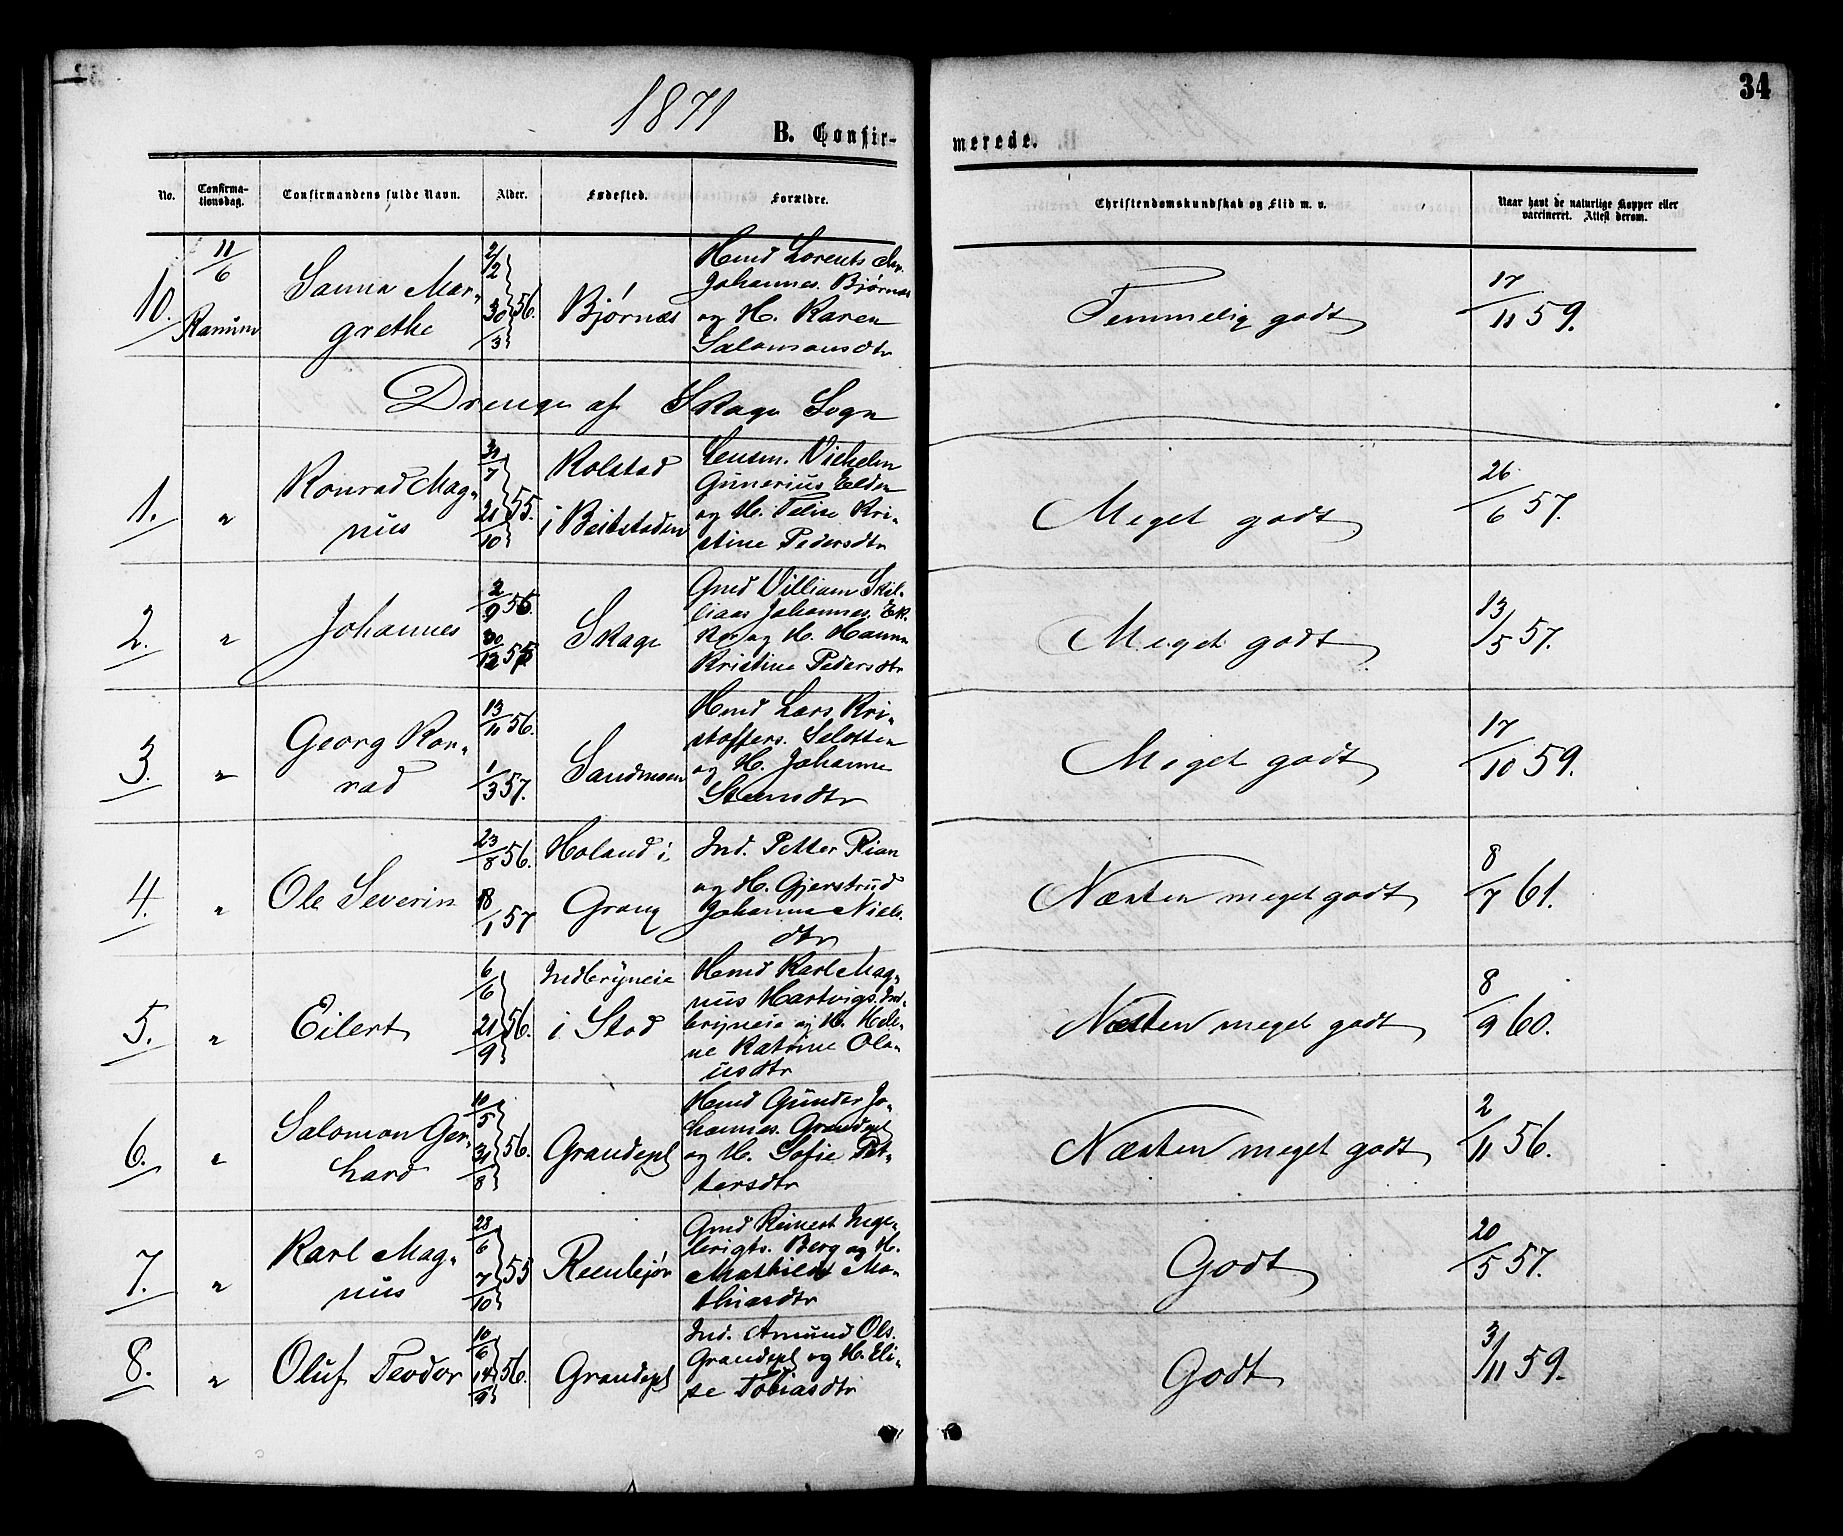 1871
34
B. Confir-
merede.
No.
Confirma-
tionsdag.
Confirmandens fulde Navn.
Alder.
Fødested.
Forældre.
Christendomskundskab og Flid m. v.
Naar havt de naturlige Kopper eller
vaccineret. Attest derom.
10.
11/6
Ranum
Sanna Mar-
grethe
2/2
30/3 56.
Bjørnæs
Hmd Lorents Chr.
Johannes. Bjørnæs
og H. Karen
Salomonsdtr
Temmelig godt
17/11 59.
Drenge af Skage Sogn
1.
"
Konrad Mag-
nus
31/7
21/10 55.
Rolstad
i Beitstaden
Lensm. Vilhelm
Gunerius Elden
og H. Felise Kri-
stine Pedersdtr
Meget godt
26/6 57.
2.
"
Johannes
2/9 56
30/12
Skage
Gmd Villiam Skil-
liaas Johannes. Ek-
ker og H. Hanna
Kristine Pedersdtr
Meget godt
13/5 57.
3.
"
Georg Kon-
rad
13/11 56.
1/3 57.
Sandmoen
Hmd Lars Kri-
stoffers. Seletten
og H. Johanna
Steensdtr
Meget godt
17/10 59.
4.
"
Ole Severin
23/8 56.
18/1 57
Holand i
Grong
Ind. Petter Rian
og H. Gjerstrud
Johanna Niels-
dtr
Næsten meget godt
8/7 61.
5.
"
Eilert
6/6
21/9 56.
Indbryneie
i Stod
Hmd Karl Mag-
nus Hartvigs. Ind-
bryneie og H. Hele-
ne Katrine Ola-
usdtr
Næsten meget godt
8/9 60.
6.
"
Salomon Ger-
hard
10/5
31/8 56.
Grandepl
Hmd Gunder Jo-
hannes. Grandepl
og H. Sofie Pet-
tersdtr
Næsten meget godt
2/11 56.
7.
"
Karl Mag-
nus
28/6
7/10 55
Reenbjør
Gmd Reinert Inge-
brigts. Berg og H.
Mathilde Ma-
thiasdtr
Godt
20/5 57.
8.
"
Oluf Teodor
10/6
14/9 56.
Grandepl
Ind. Amund Ols.
Grandepl og H. Eli-
se Tobiasdtr
Godt
3/11 59.